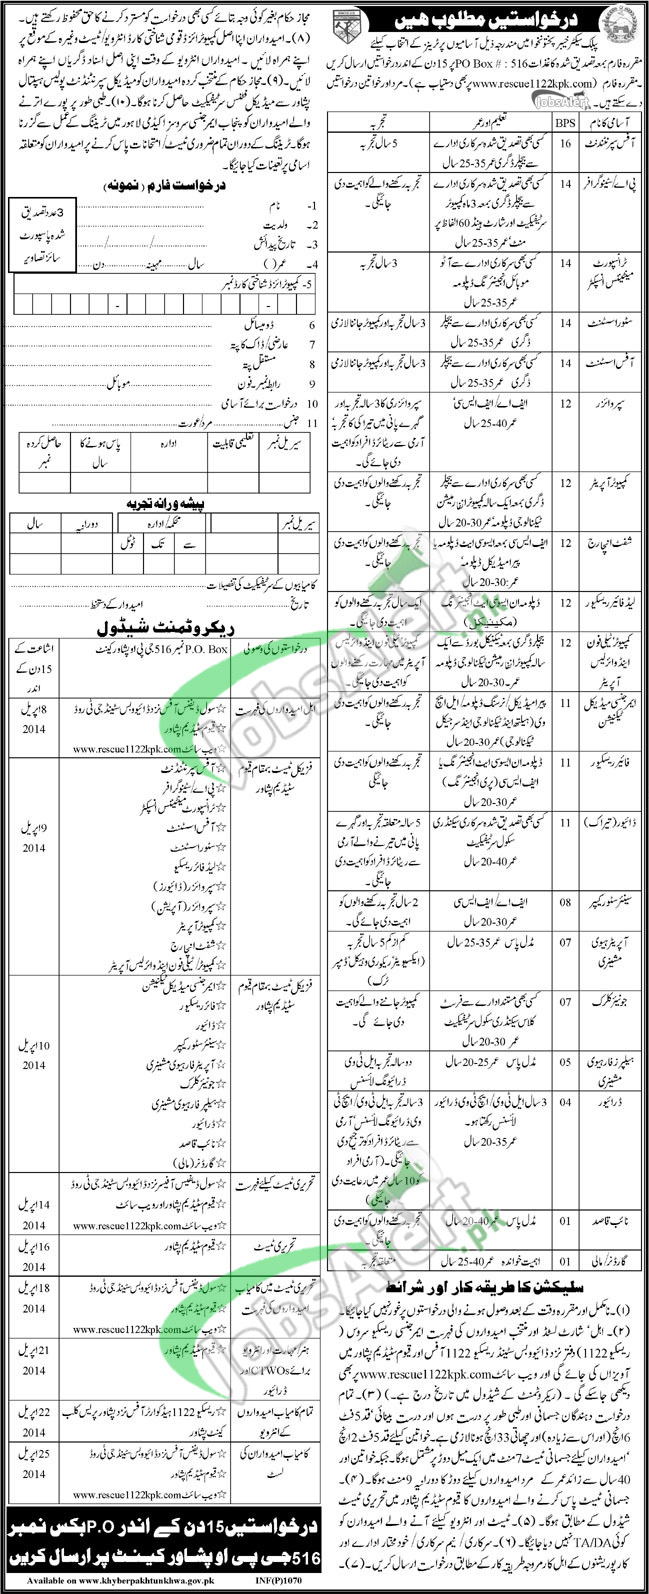 درخواستیں مطلوب ہیں
پبلک سیکٹر خیبر پختونخوا میں مندرجہ ذیل آسامیوں پر ٹرینیز کے انتخاب کیلئے
مقررہ فارم بمعہ تصدیق شدہ کاغذات PO Box # : 516 پر 15 دن کے اندر درخواستیں ارسال کریں
مقررہ فارم www.rescue1122kpk.com پر بھی دستیاب ہے۔ مرد اور خواتین درخواستیں
دے سکتے ہیں۔
آسامی کا نام BPS تعلیم اور عمر تجربہ
آفس سپرنٹنڈنٹ 16 کسی بھی تصدیق شدہ سرکاری ادارے سے بیچلر ڈگری عمر 35-25 سال 5 سال تجربہ
پی اے/سٹینوگرافر 14 کسی بھی تصدیق شدہ سرکاری ادارے سے بیچلر ڈگری بمعہ 3 ماہ کمپیوٹر سرٹیفکیٹ اور شارٹ ہینڈ 60 الفاظ پر منٹ عمر 35-25 سال تجربہ رکھنے والے کو اہمیت دی جائیگی۔
ٹرانسپورٹ مینٹیننس انسپکٹر 14 کسی بھی سرکاری ادارے سے آٹو موبائل انجینئرنگ ڈپلومہ عمر 35-25 سال 3 سال تجربہ
سٹور اسسٹنٹ 14 کسی بھی سرکاری ادارے سے بیچلر ڈگری عمر 35-25 سال 3 سال تجربہ اور کمپیوٹر جاننا لازمی
آفس اسسٹنٹ 14 کسی بھی سرکاری ادارے سے بیچلر ڈگری عمر 35-25 سال 3 سال تجربہ اور کمپیوٹر جاننا لازمی
سپروائزر 12 ایف اے/ایف ایس سی عمر 40-25 سال سپروائزری کا 3 سالہ تجربہ اور گہرے پانی میں تیراکی کا تجربہ آرمی سے ریٹائرڈ افراد کو اہمیت دی جائے گی۔
کمپیوٹر آپریٹر 12 کسی بھی سرکاری ادارے سے بیچلر ڈگری بمعہ ایک سالہ کمپیوٹر انفارمیشن ٹیکنالوجی ڈپلومہ عمر 30-20 سال تجربہ رکھنے والوں کو اہمیت دی جائیگی
شفٹ انچارج 12 ایف ایس سی بمعہ ایسوسی ایٹ ڈپلومہ یا پیرامیڈیکل ڈپلومہ عمر: 30-20 سال تجربہ رکھنے والوں کو اہمیت دی جائیگی
لیڈ فائر ریسکیور 12 ڈپلومہ ان ایسوسی ایٹ انجینئرنگ (مکینیکل) ایک سال تجربہ رکھنے والوں کو
کمپیوٹر ٹیلی فون اینڈ وائرلیس آپریٹر 12 عمر۔ 30-20 سال
ایمرجنسی میڈیکل ٹیکنیشن 11 عمر۔ 30-20 سال تجربہ رکھنے والوں کو اہمیت دی جائیگی
فائر ریسکیور 11 ڈپلومہ ان ایسوسی ایٹ انجینئرنگ یا ایف ایس سی (پری انجینئرنگ) عمر 30-20 سال تجربہ رکھنے والوں کو اہمیت دی جائیگی
ڈائیور (تیراک) 11 کسی بھی تصدیق شدہ سرکاری سیکنڈری سکول سرٹیفکیٹ عمر 40-20 سال 5 سالہ متعلقہ تجربہ اور گہرے پانی میں تیرنے والے آرمی سے ریٹائرڈ افراد کو اہمیت دی جائیگی
سینئر سٹور کیپر 08 ایف اے/ایف ایس سی عمر 30-20 سال 2 سال تجربہ رکھنے والوں کو اہمیت دی جائے گی۔
آپریٹر ہیوی مشینری 07 مڈل پاس عمر 35-25 سال کم از کم 5 سال تجربہ (ایکسیویٹر/ریکوری وہیکل/ڈمپر ٹرک)
جونیئر کلرک 07 کسی بھی مستند ادارے سے فرسٹ کلاس سیکنڈری سکول سرٹیفکیٹ عمر 30-20 سال کمپیوٹر جاننے والے کو اہمیت دی جائے گی۔
ہیلپر فار ہیوی مشینری 05 مڈل پاس عمر 25-20 سال دو سالہ تجربہ ایل ٹی وی ڈرائیونگ لائسنس
ڈرائیور 04 3 سال ایل ٹی وی/ایچ ٹی وی ڈرائیور لائسنس رکھتا ہو۔ عمر 35-20 سال
نائب قاصد 01 مڈل پاس عمر 40-20 سال تجربہ رکھنے والوں کو اہمیت دی جائیگی
گارڈنر/مالی 01 اہمیت خواندہ عمر 40-25 سال متعلقہ تجربہ
سلیکشن کا طریقہ کار اور شرائط
(۱)۔ نامکمل اور مقررہ وقت کے بعد وصول ہونے والی درخواستوں پر غور نہیں کیا جائیگا۔
(۲)۔ اہل شارٹ لسٹڈ اور منتخب امیدواروں کی فہرست ایمرجنسی ریسکیو سروس (ریسکیو 1122)
آویزاں کی جائے گی اور ویب سائٹ www.rescue1122kpk.com پر بھی
دیکھی جاسکے گی۔ (ریکروٹمنٹ کے شیڈول میں تاریخ درج ہے)۔ (۳)۔ تمام
درخواست دہندگان جسمانی اور طبی طور پر درست ہوں اور درست بینائی، قد 5 فٹ
6 انچ (اور اس سے زیادہ) اور چھاتی 33 انچ ہونا لازمی ہے۔ خواتین کیلئے قد 5 فٹ 2 انچ
امیدواران کیلئے جسمانی ٹیسٹ 7 منٹ میں ایک میل دوڑ پر مشتمل ہوگا۔ جبکہ خواتین اور
40 سال سے زائد عمر کے مرد امیدواروں کیلئے دوڑ کا دورانیہ 9 منٹ ہوگا۔ (۴)۔
جسمانی ٹیسٹ پاس کرنے والے امیدواروں کا قیوم سٹیڈیم پشاور میں تحریری ٹیسٹ
شیڈول کے مطابق ہوگا۔ (۵)۔ ٹیسٹ اور انٹرویو کیلئے آنے والے امیدواران کو
کوئی TA/DA نہیں دیا جائیگا۔ (۶)۔ سرکاری/نیم سرکاری/خودمختار ادارے اور
کارپوریشنوں کے اہل کار مروجہ طریقہ کار کے مطابق درخواست ارسال کریں۔ (۷)۔
مجاز حکام بغیر کوئی وجہ بتائے کسی بھی درخواست کو مسترد کرنے کا حق محفوظ رکھتے ہیں۔
(۸)۔ امیدواران اپنا اصل کمپیوٹرائزڈ قومی شناختی کارڈ انٹرویو/ٹیسٹ وغیرہ کے موقع پر
اپنے ہمراہ لائیں۔ امیدواران انٹرویو کے وقت اپنی اصل اسناد/ڈگریاں اپنے ہمراہ
لائیں۔ (۹)۔ مجاز حکام کے منتخب کردہ امیدواران کو میڈیکل سپرنٹنڈنٹ پولیس ہسپتال
پشاور سے میڈیکل فٹنس سرٹیفکیٹ حاصل کرنا ہوگا۔ (۱۰)۔ طبی طور پر پورے اترنے
والے امیدواران کو پنجاب ایمرجنسی سروسز اکیڈمی لاہور میں ٹریننگ کے عمل سے گزرنا
ہوگا۔ ٹریننگ کے دوران تمام ضروری ٹیسٹ/امتحانات پاس کرنے پر امیدواران کو متعلقہ
اسامی پر تعینات کیا جائیگا۔
درخواست فارم (نمونہ)
3 عدد تصدیق شدہ پاسپورٹ سائز تصاویر
1- نام
2- ولدیت
3- تاریخ پیدائش
4- عمر ( ) سال مہینہ دن
5- کمپیوٹرائزڈ شناختی کارڈ نمبر
6 ڈومیسائل
7 عارضی/ڈاک کا پتہ
8 مستقل پتہ
9 رابطہ نمبر۔ فون موبائل
10 درخواست برائے آسامی
11 جنس مرد/عورت
سیریل نمبر تعلیمی قابلیت ادارہ پاس ہونے کا سال حاصل کردہ نمبر
پیشہ ورانہ تجربہ
سیریل نمبر محکمہ/ادارہ دورانیہ سال
سے تک ٹوٹل
کامیابیوں کے سرٹیفکیٹ کی تفصیلات
تاریخ امیدوار کے دستخط
ریکروٹمنٹ شیڈول
درخواستوں کی وصولی P.O. Box نمبر 516 جی پی او پشاور کینٹ اشاعت کے 15 دن کے اندر
اہل امیدواروں کی فہرست ☆ سول ڈیفنس آفس نزد ڈائیوو بس سٹینڈ جی ٹی روڈ ☆ قیوم سٹیڈیم پشاور ☆ ویب سائٹ www.rescue1122kpk.com 8 اپریل 2014
فزیکل ٹیسٹ بمقام قیوم سٹیڈیم پشاور 9 اپریل 2014
☆ آفس سپرنٹنڈنٹ
☆ پی اے/سٹینوگرافر
☆ ٹرانسپورٹ مینٹیننس انسپکٹر
☆ آفس اسسٹنٹ
☆ سٹور اسسٹنٹ
☆ لیڈ فائر ریسکیو
☆ سپروائزر (ڈائیورز)
☆ سپروائزر (آپریشن)
☆ کمپیوٹر آپریٹر
☆ شفٹ انچارج
☆ کمپیوٹر/ٹیلی فون اینڈ وائرلیس آپریٹر
فزیکل ٹیسٹ بمقام قیوم سٹیڈیم پشاور 10 اپریل 2014
☆ ایمرجنسی میڈیکل ٹیکنیشن
☆ فائر ریسکیور
☆ ڈائیور
☆ سینئر سٹور کیپر
☆ آپریٹر فار ہیوی مشینری
☆ جونیئر کلرک
☆ ہیلپر فار ہیوی مشینری
☆ ڈرائیور
☆ نائب قاصد
☆ گارڈنر (مالی)
تحریری ٹیسٹ کیلئے فہرست ☆ سول ڈیفنس آفس نزد ڈائیوو بس سٹینڈ جی ٹی روڈ ☆ قیوم سٹیڈیم پشاور اور ویب سائٹ ☆ ویب سائٹ www.rescue1122kpk.com 14 اپریل 2014
تحریری ٹیسٹ ☆ قیوم سٹیڈیم پشاور 16 اپریل 2014
تحریری ٹیسٹ میں کامیاب امیدواروں کی فہرست ☆ سول ڈیفنس آفس نزد ڈائیوو بس سٹینڈ جی ٹی روڈ ☆ قیوم سٹیڈیم پشاور ☆ ویب سائٹ www.rescue1122kpk.com 18 اپریل 2014
ہنر/مہارت اور انٹرویو برائے CTWOs اور ڈرائیور ☆ قیوم سٹیڈیم پشاور 21 اپریل 2014
تمام کامیاب امیدواروں کے انٹرویو ☆ ریسکیو 1122 ہیڈ کوارٹر آفس نزد پشاور پریس کلب کینٹ پشاور 22 اپریل 2014
کامیاب امیدواروں کی لسٹ ☆ سول ڈیفنس آفس نزد ڈائیوو بس سٹینڈ جی ٹی روڈ ☆ قیوم سٹیڈیم پشاور ☆ ویب سائٹ www.rescue1122kpk.com 25 اپریل 2014
درخواستیں 15 دن کے اندر P.O بکس نمبر
516 جی پی او پشاور کینٹ پر ارسال کریں
Available on www.khyberpakhtunkhwa.gov.pk INF(P)1070
JobsAlert.pk
JobsAlert.pk
JobsAlert.pk